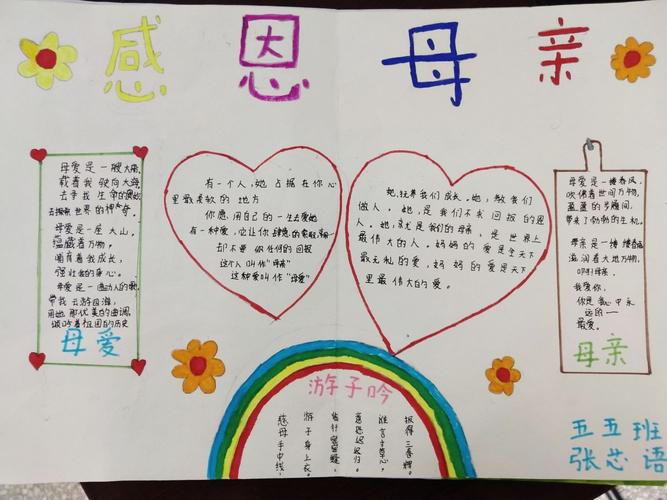 感恩母亲
母爱是一艘大船,
载着我驶向大海
去寻找生命的
去探索世界的神奇。
母爱是一座大山,
蕴藏着万物,
哺育着我成长,
强壮我的身心。
母爱是一首动人的歌,
带我云游四海,
用她那优美的曲调,
颂吟着祖国的历史
母爱
有一个人,她占据在你心
里最柔软的地方
你愿用自己的一生去爱她
有一种爱,它让你肆意的索取,享用
却不要你任何的回报
这个人叫作“母亲”
这种爱叫作“母爱”
她,抚养我们成长。她,教我们
做人。她,是我们不求回报的恩
人。她,就是我们的母亲,是世界上
最伟大的人。妈妈的爱是全天下
最无私的爱,妈妈的爱是天下
里最伟大的爱。
母爱是一缕春风,
吹拂着世间万物,
带来了勃勃的生机。
母亲是一捧
滋润着大地万物,
母亲,
我爱你,
你是我心中永
远的一
最爱。
母亲
游子吟
慈母手中线,
游子身上衣。
临行密密缝,
意恐迟迟归。
谁言寸草心,
报得三春晖。
五五班
张芯语